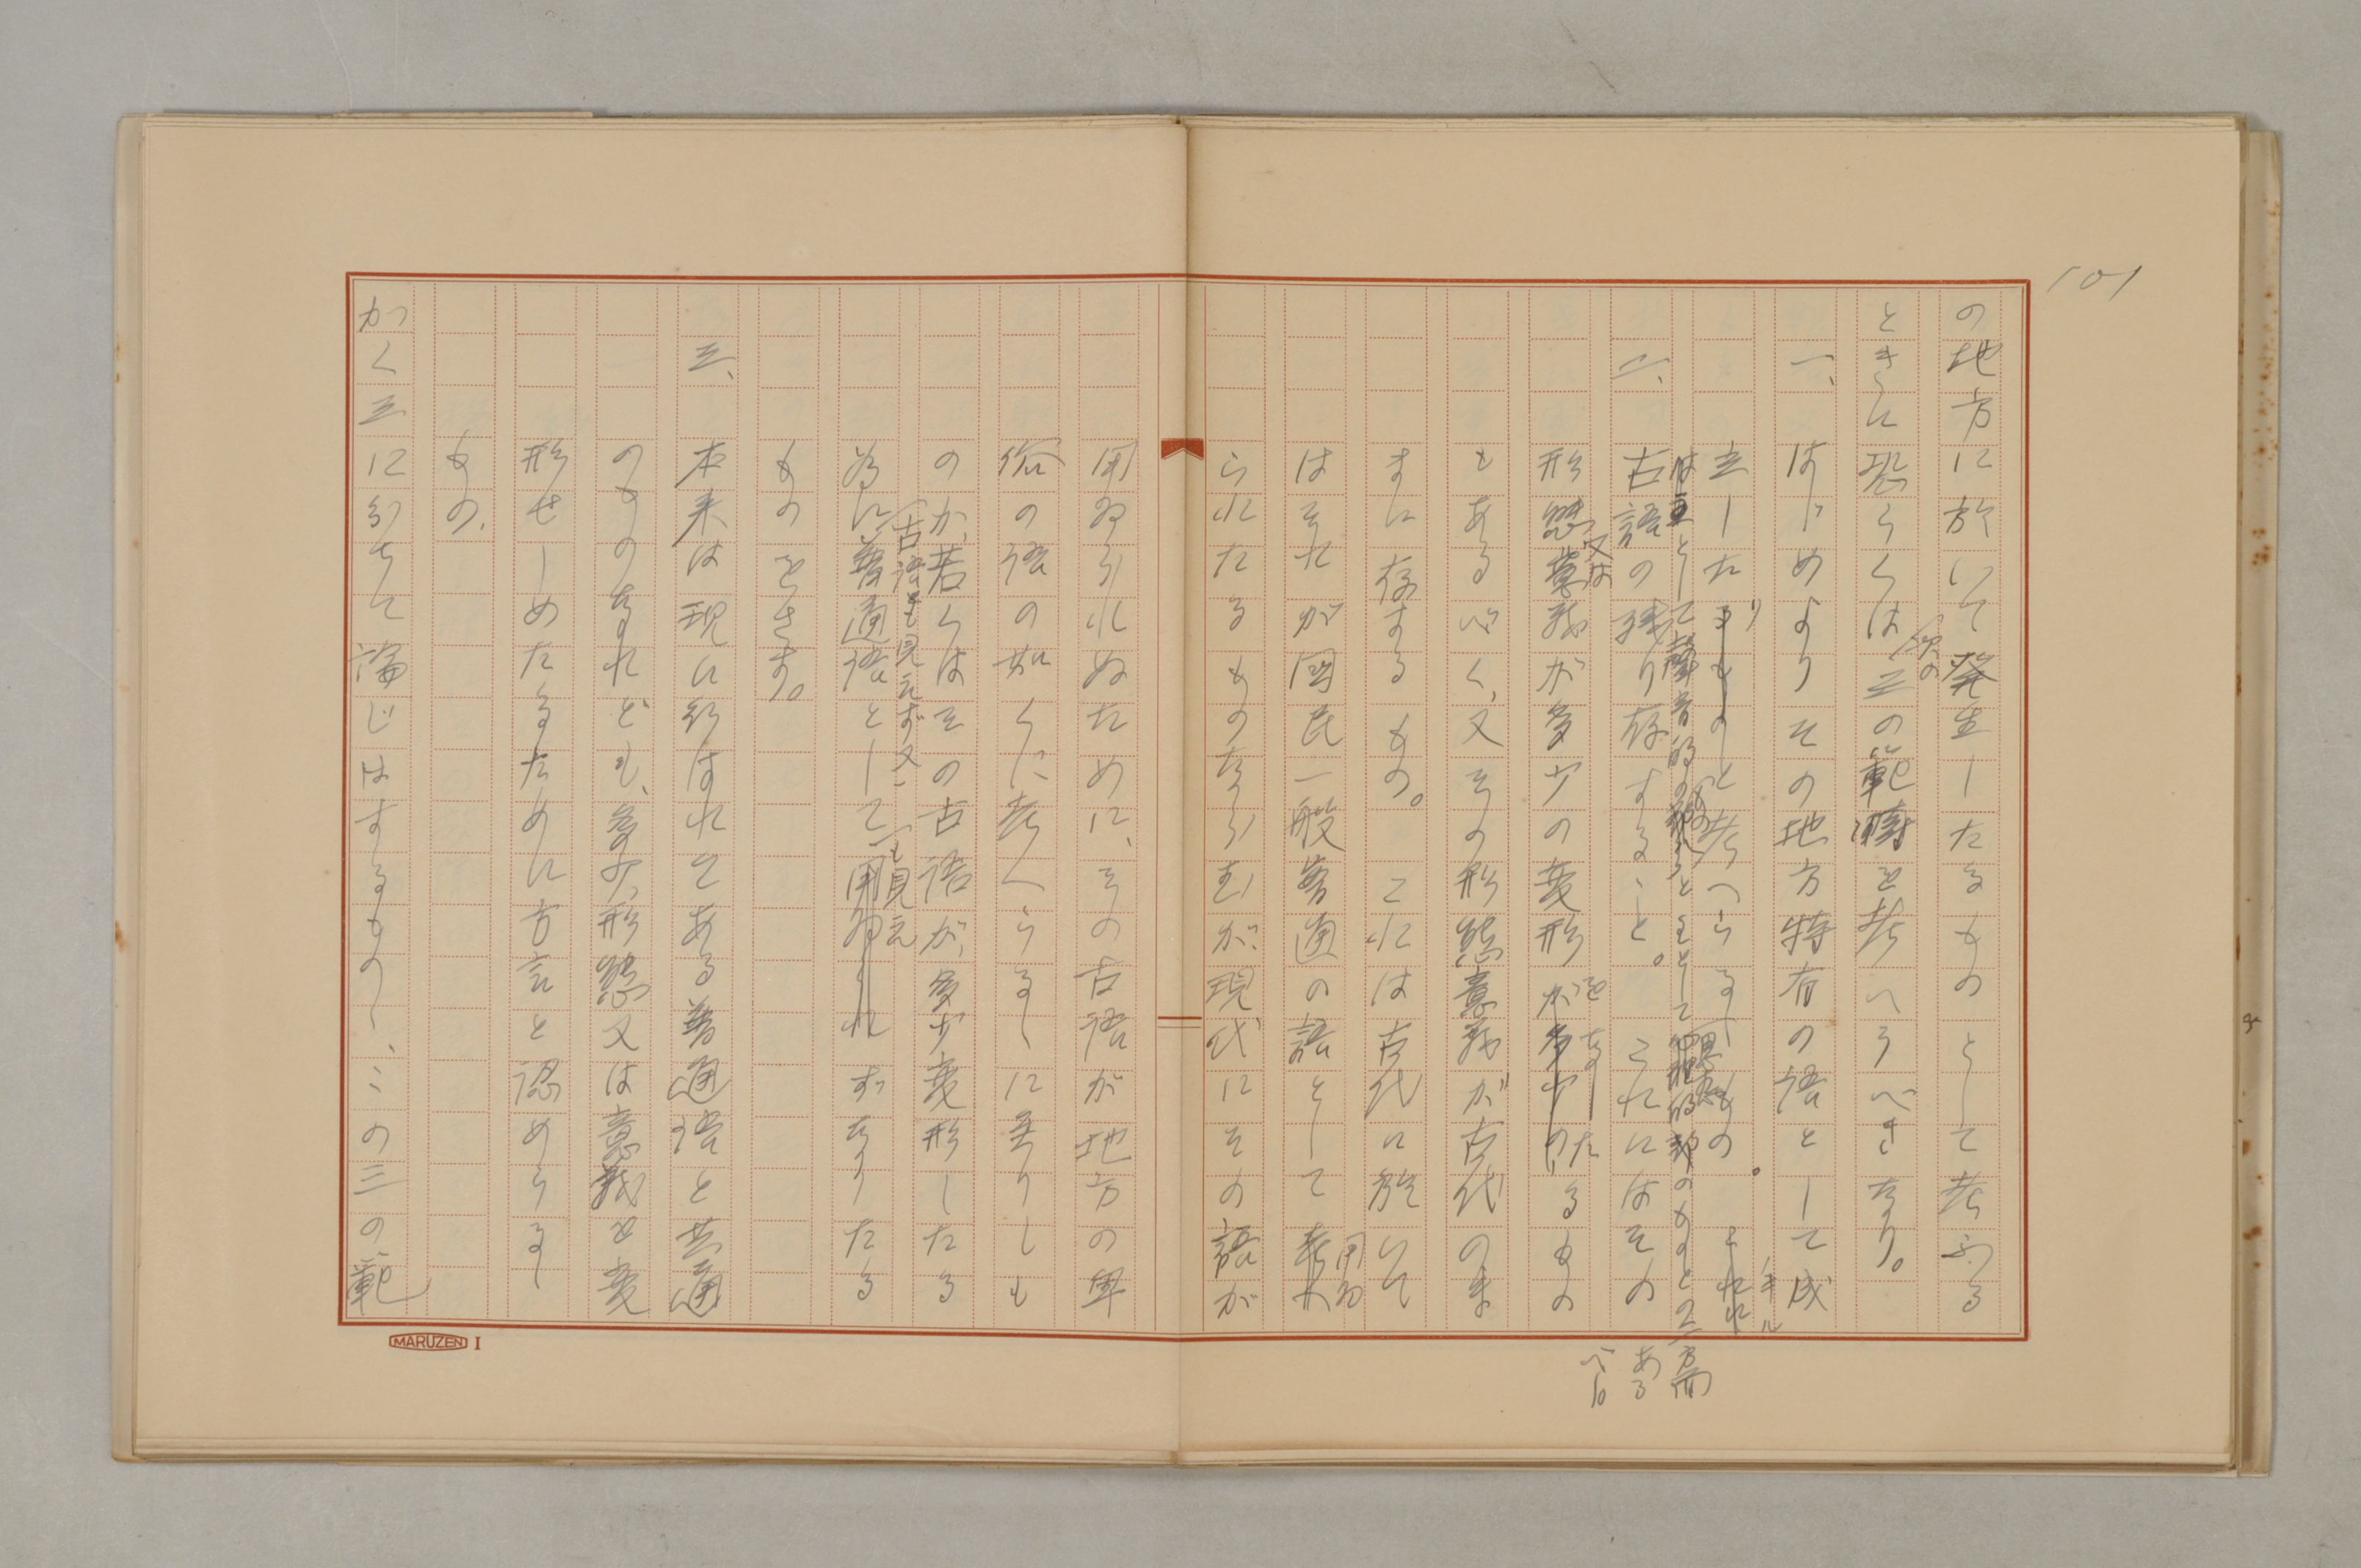 101
の地方に於いて発生したるものとして考ふる
ときに恐らくは次の三の範疇を考へうべきなり。
一、はじめよりその地方特有の語として成
立したりしものと考へらるゝもの。
古語の残り存すること。これにはその
形態又は意義が多少の変形をなしたるもの
もあるべく、又その形態意義が古代のま
まに存するもの。これは古代に於いて
はそれが国民一般普通の語として用ゐ
られたるものならむが現代にその語が
用ゐられぬために、その古語が地方の卑
俗の語の如くに考へらるゝに至りしも
のか、若くはその古語が、多少変形したる
為に普通語として見えずなりたる
ものをさす。
三、本来は現に行はれてある普通語と共通
のものなれども、多少、形態又は意義を変
形せしめたるために方言と認めらるゝ
もの、
かく三に分ちて論じはするものゝ、この三の範
MARUZEN I